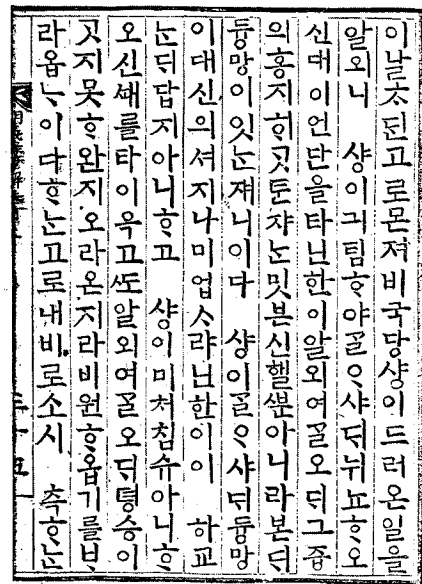 이날ᄎᆞᄃᆡᆫ고로몬져비국당샹이드러온일을
알외니 샹이긔팀ᄒᆞ야ᄀᆞᆯᄋᆞ샤ᄃᆡ뉘됴ᄒᆞ오
신대이언단을타닌한이알외여ᄀᆞᆯ오ᄃᆡ그즙
의홍지ᄒᆡᄀᆞᆺᄐᆞᆫ쟈ᄂᆞᆫ밋븐신헬ᄲᅮᆫ아니라본ᄃᆡ
듕망이잇ᄂᆞᆫ재니이다 샹이ᄀᆞᆯᄋᆞ샤ᄃᆡ듕망
이대신의셔지나미업ᄉᆞ랴닌한이이 하교
ᄂᆞᆫᄃᆡ답지아니ᄒᆞ고 샹이미처침슈아니ᄒᆞ
오신ᄣᅢ를타이윽고ᄯᅩ알외여ᄀᆞᆯ오ᄃᆡ뎡승이
ᄀᆞᆺ지못ᄒᆞ완지오라온지라비원ᄒᆞᄋᆞᆸ기를ᄇᆞ
라ᄋᆞᆸᄂᆞ이다ᄒᆞᄂᆞᆫ고로내비로소시 측ᄒᆞᄂᆞᆫ